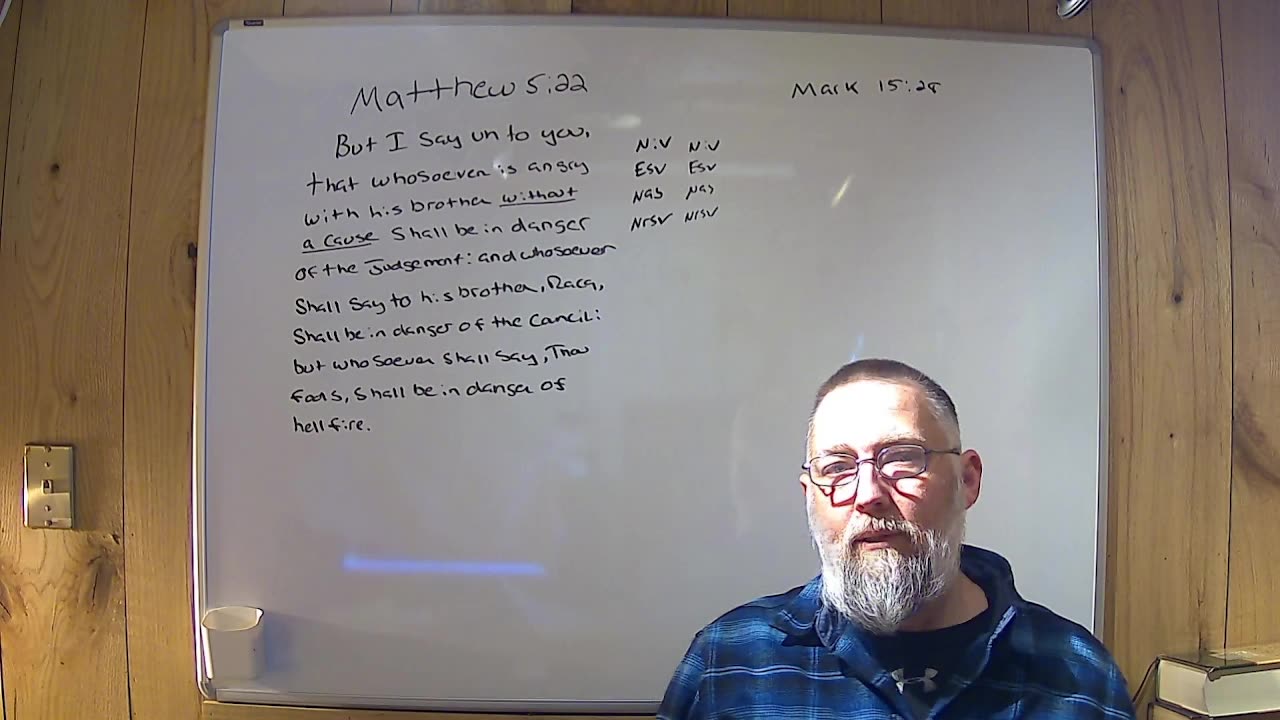 Matthew 5:22
But I say un to you,
that whosoever is angry
with his brother without
a cause shall be in danger
of the Judgement: and whosoever
shall say to his brother, Raca,
shall be in danger of the Cancil:
but whosoever shall say, Thou
fools, shall be in danger of
hell fire.
NIV NIV
ESV ESV
NAS NAS
NrSV NrSV
Mark 15:28